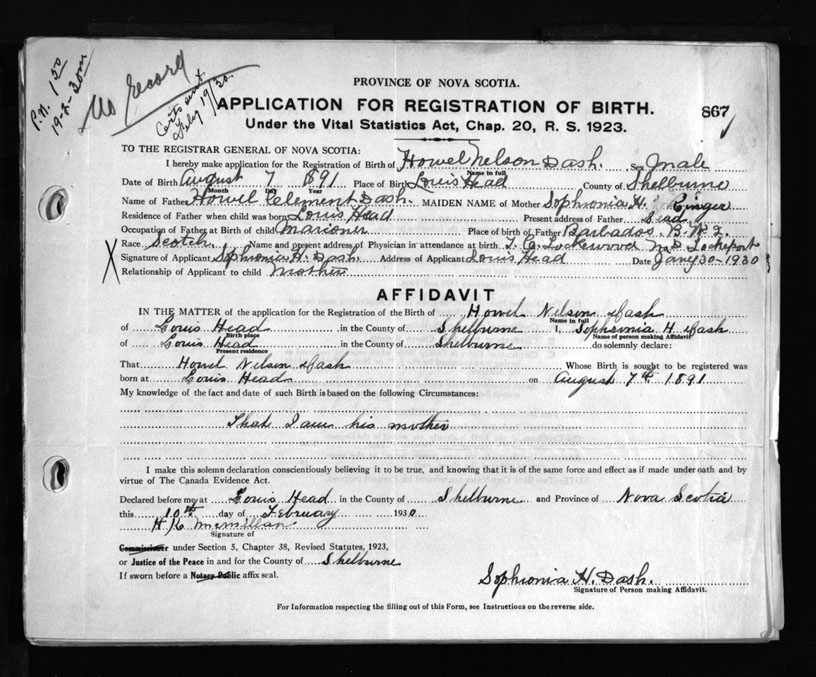 P.N. 1 50
19-2-30
No Record
Certs sent
Feby 19/30
PROVINCE OF NOVA SCOTIA.
APPLICATION FOR REGISTRATION OF BIRTH.
867
Under the Vital Statistics Act, Chap. 20, R. S. 1923.
TO THE REGISTRAR GENERAL OF NOVA SCOTIA:
I hereby make application for the Registration of Birth of Howel Nelson Dash. Sex Male
Name in full
Date of Birth August 7 1891 Place of Birth Louis Head County of Shelburne
Month Day Year
Name of Father Howel Clement Dash. MAIDEN NAME of Mother Sophronia H. Ringer
Residence of Father when child was born Louis Head Present address of Father Dead
Occupation of Father at Birth of child Marioner Place of birth of Father Barbados, B.W.I.
Race Scotch Name and present address of Physician in attendance at birth L.C. Lockwood M.D. Lockeport
Signature of Applicant Sophronia H. Dash. Address of Applicant Louis Head Date Jany 30-1930
Relationship of Applicant to child Mother
AFFIDAVIT
IN THE MATTER of the application for the Registration of the Birth of Howel Nelson Dash
Name in full
of Louis Head in the County of Shelburne I, Sophronia H. Dash
Birth place Name of person making Affidavit
of Louis Head in the County of Shelburne do solemnly declare:
Present residence
That Howel Nelson Dash Whose Birth is sought to be registered was
born at Louis Head on August 7th 1891
My knowledge of the fact and date of such Birth is based on the following Circumstances:
That I am his mother
I make this solemn declaration conscientiously believing it to be true, and knowing that it is of the same force and effect as if made under oath and by
virtue of The Canada Evidence Act.
Declared before me at Louis Head in the County of Shelburne and Province of Nova Scotia
this 10th day of February 1930
H K McMillan
Signature of
Commissioner under Section 5, Chapter 38, Revised Statutes, 1923,
or Justice of the Peace in and for the County of Shelburne
If sworn before a Notary Public affix seal.
Sophronia H. Dash.
Signature of Person making Affidavit.
For Information respecting the filling out of this Form, see Instructions on the reverse side.